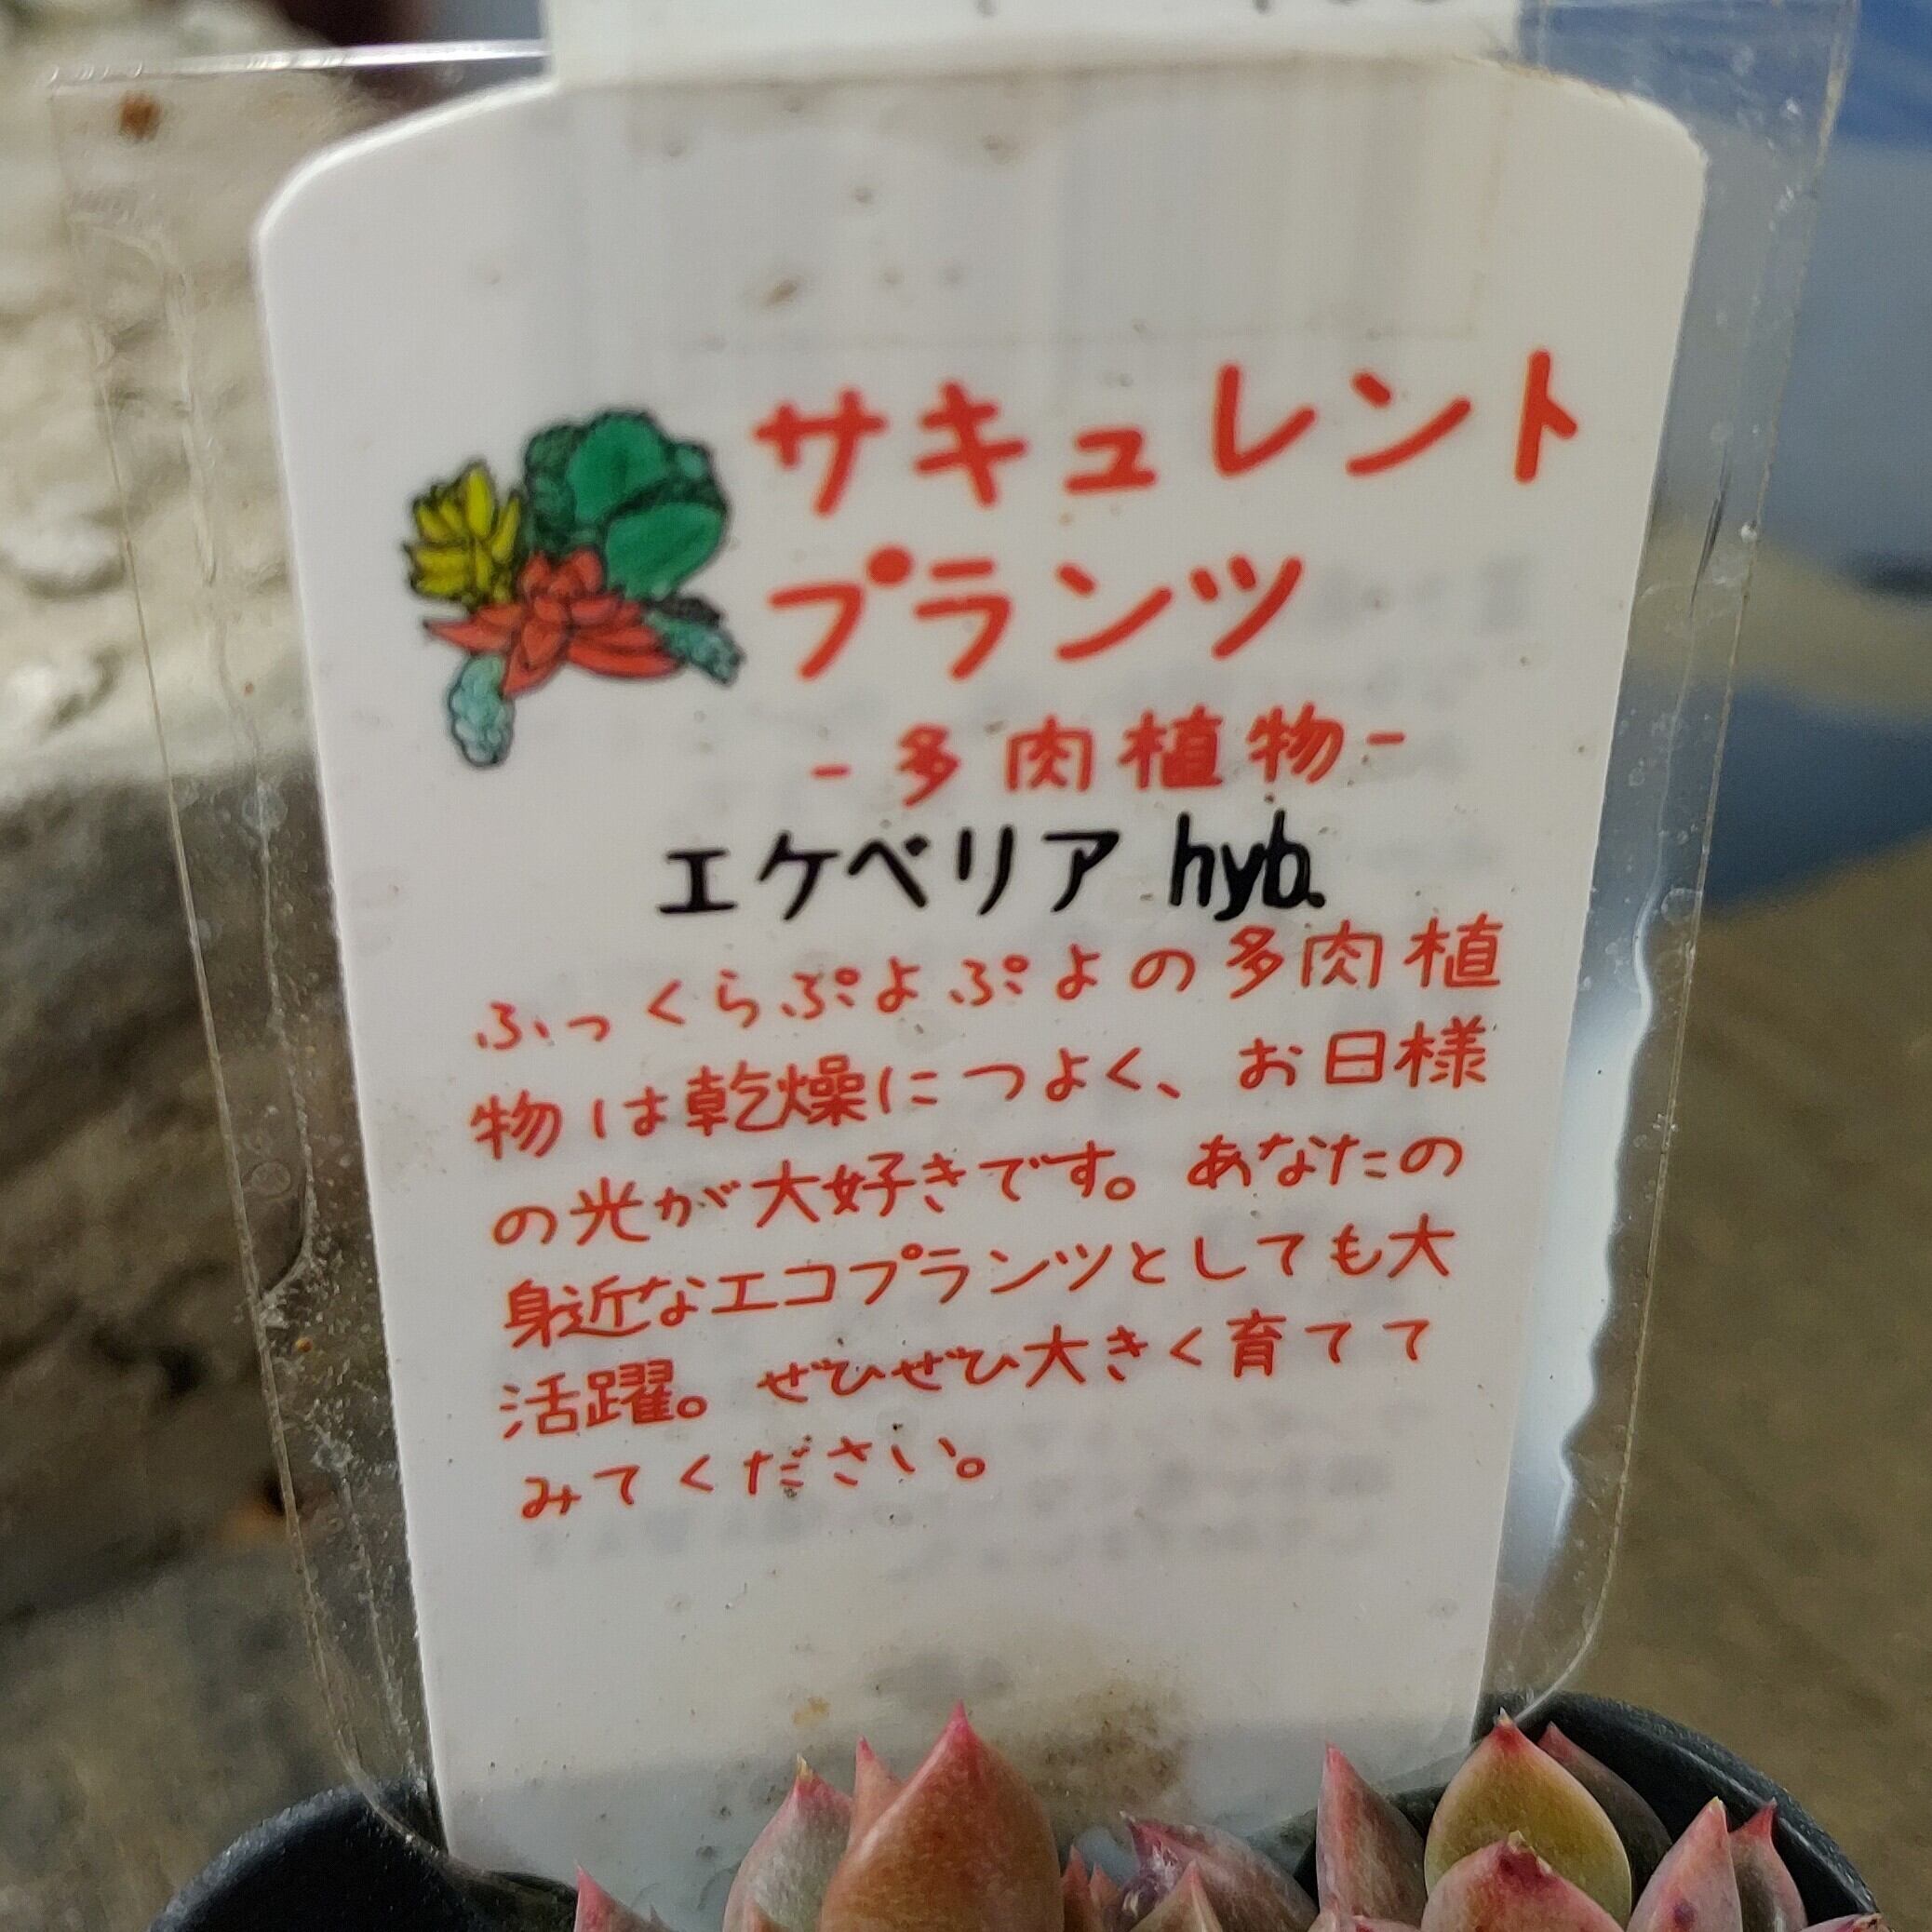 サキュレント
プランツ
-多肉植物-
エケベリア hyb.
ふっくらぷよぷよの多肉植
物は乾燥につよく、お日様
の光が大好きです。あなたの
身近なエコプランツとしても大
活躍。ぜひぜひ大きく育てて
みてください。